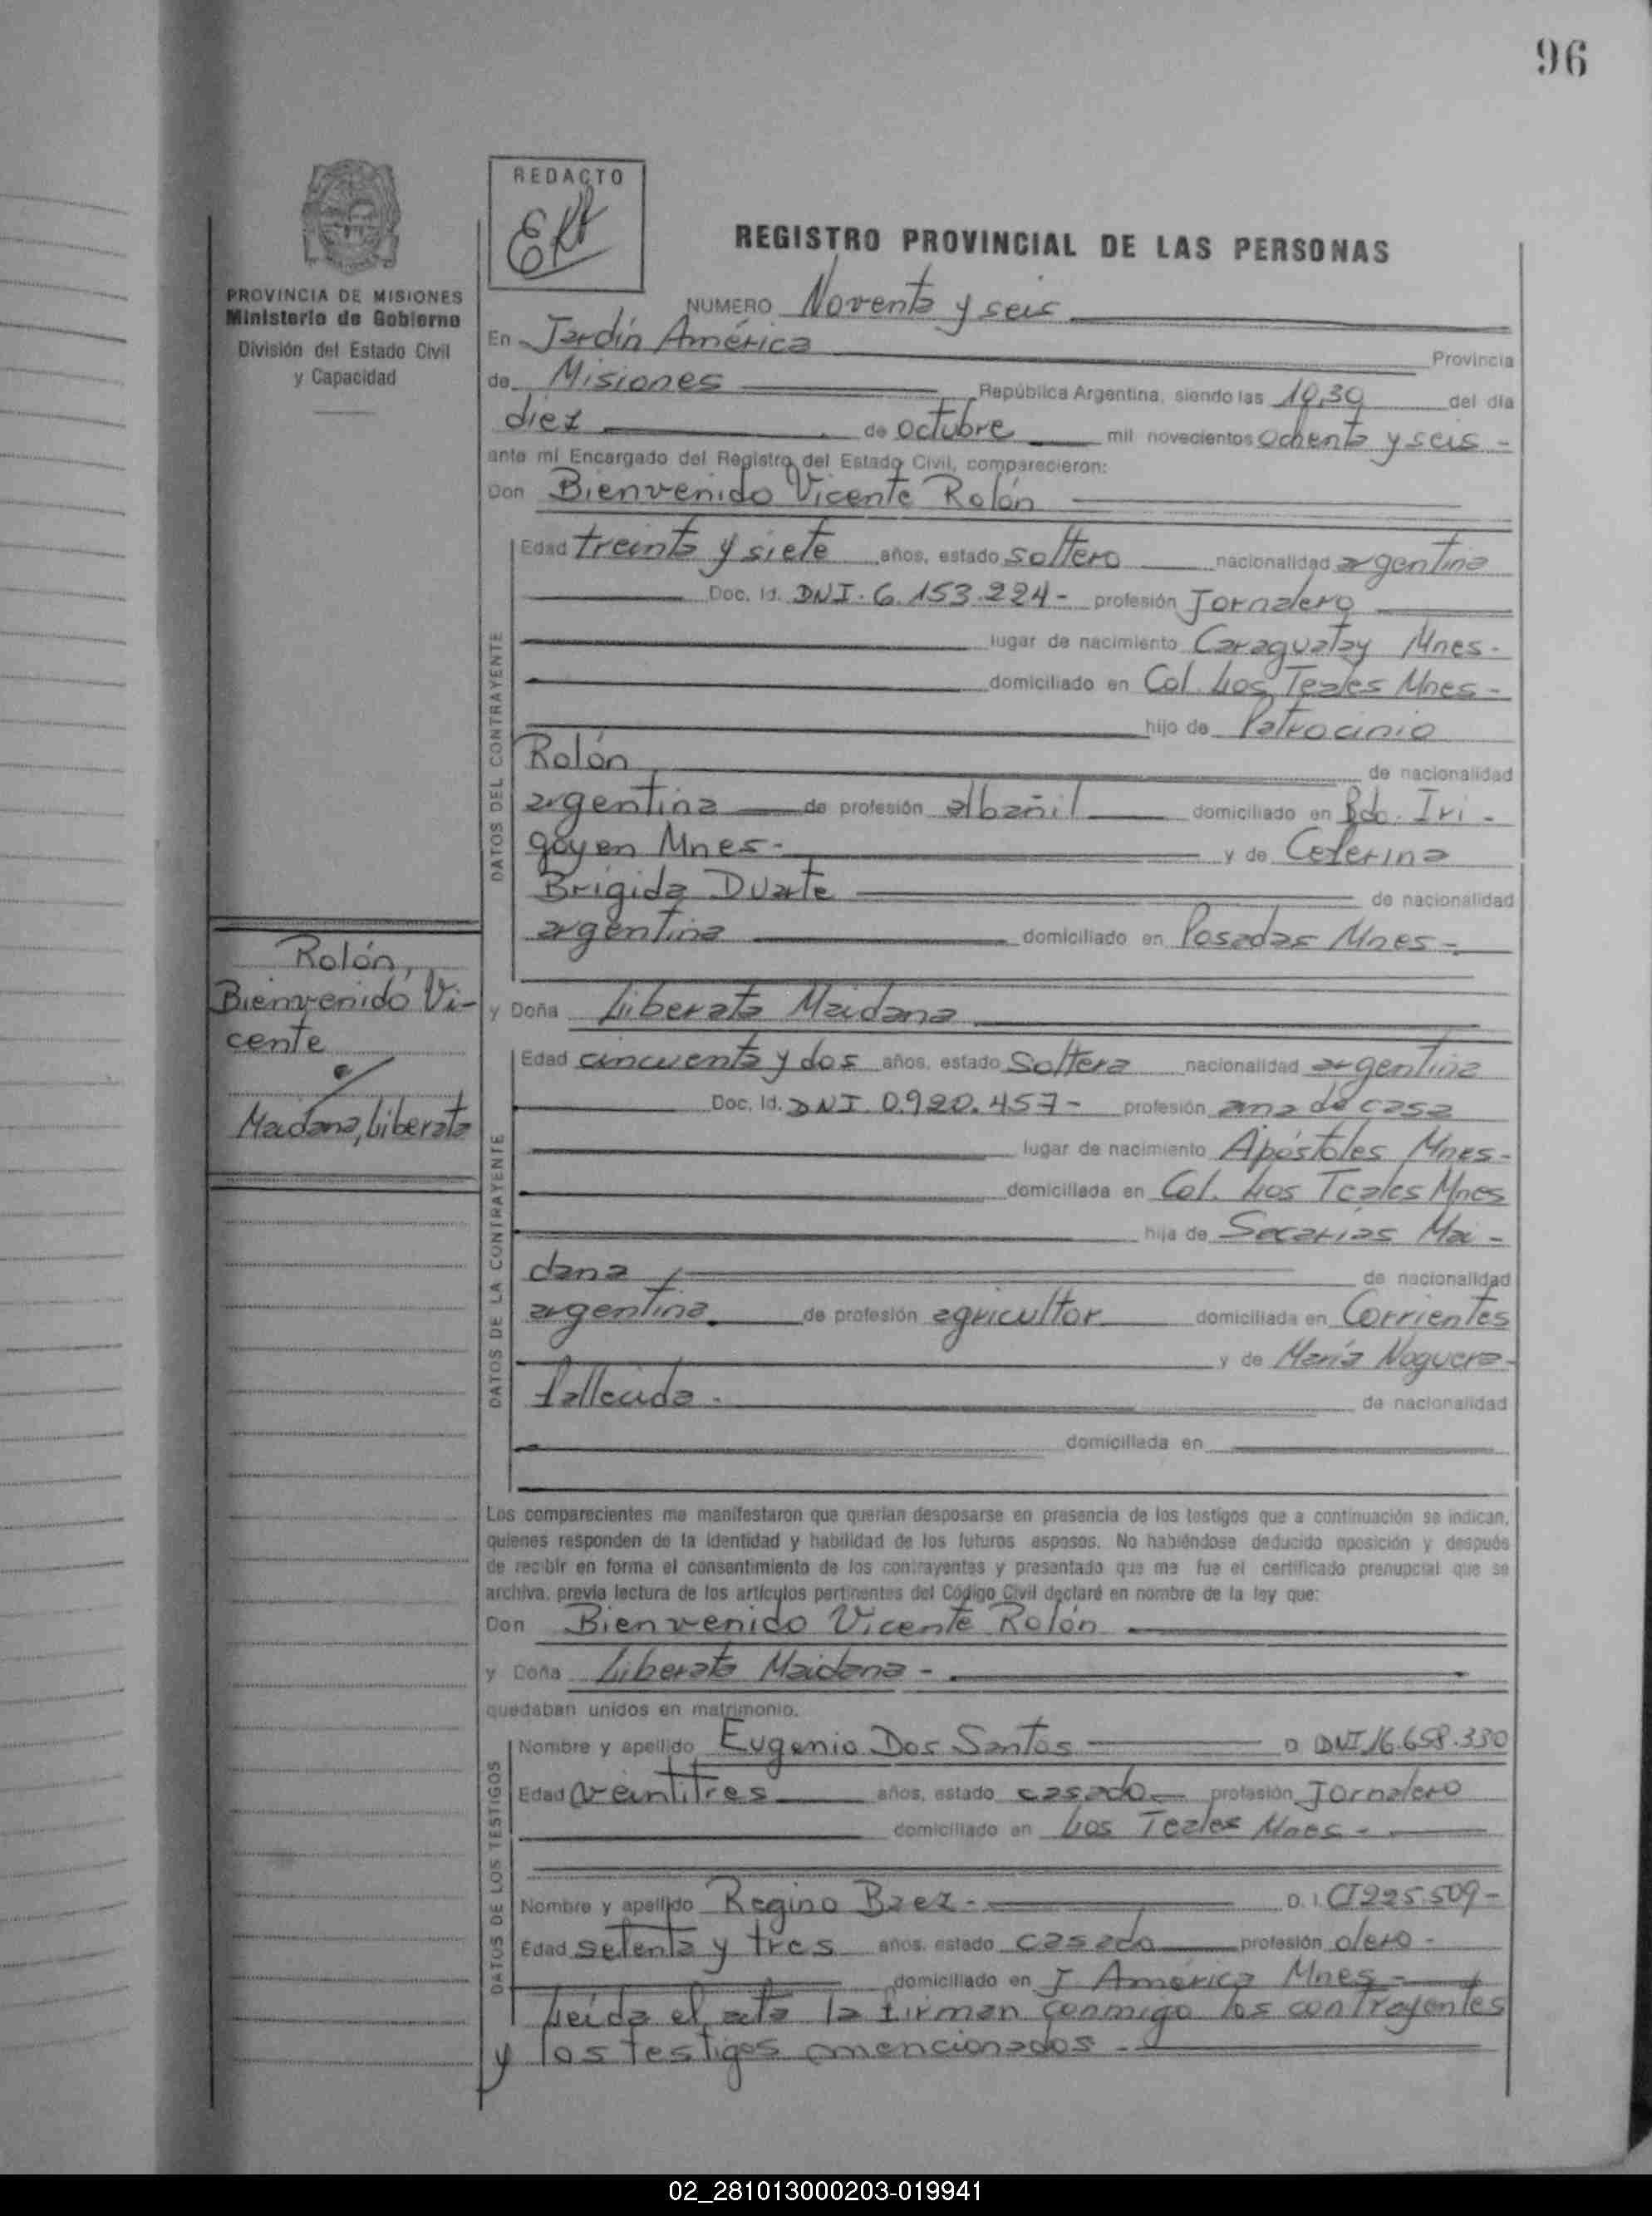 96
REDACTO
REGISTRO PROVINCIAL DE LAS PERSONAS
PROVINCIA DE MISIONES
Ministerio de Gobierno
División del Estado Civil
y Capacidad
NUMERO Noventa y seis
En Jardín América Provincia
de Misiones República Argentina, siendo las 10,30 del día
diez de octubre mil novecientos ochenta y seis -
ante mi Encargado del Registro del Estado Civil, comparecieron:
Don Bienvenido Vicente Rolón
DATOS DEL CONTRAYENTE
Edad treinta y siete años, estado soltero nacionalidad argentina
Doc. Id. DNI. 6.153.224- profesión Jornalero
lugar de nacimiento Caraguatay Mnes-
domiciliado en Col. Los Teales Mnes-
hijo de Patrocinio
Rolón de nacionalidad
argentina de profesión albañil domiciliado en Bdo. Iri-
goyen Mnes- y de Ceferina
Brigida Duarte de nacionalidad
argentina domiciliado en Posadas Mnes-
Rolón,
Bienvenido Vi-
cente
c/
Maidana, Liberata
y Doña Liberata Maidana
DATOS DE LA CONTRAYENTE
Edad cincuenta y dos años, estado Soltera nacionalidad argentina
Doc. Id. DNI 0.920.457- profesión ama de casa
lugar de nacimiento Apóstoles Mnes-
domiciliada en Col. Los Teales Mnes
hija de Secarias Mai-
dana de nacionalidad
argentina de profesión agricultor domiciliada en Corrientes
y de María Noguera-
fallecida. de nacionalidad
domiciliada en
Los comparecientes me manifestaron que querían desposarse en presencia de los testigos que a continuación se indican,
quienes responden de la identidad y habilidad de los futuros esposos. No habiéndose deducido oposición y después
de recibir en forma el consentimiento de los contrayentes y presentado que me fue el certificado prenupcial que se
archiva, previa lectura de los artículos pertinentes del Código Civil declaré en nombre de la ley que:
Don Bienvenido Vicente Rolón
y Doña Liberata Maidana-
quedaban unidos en matrimonio.
DATOS DE LOS TESTIGOS
Nombre y apellido Eugenio Dos Santos D DNI 16.658.330
Edad veintitres años, estado casado profesión Jornalero
domiciliado en Los Teales Mnes-
Nombre y apellido Regino Baez- D. I. CI 225.509-
Edad setenta y tres años, estado casado profesión olero-
domiciliado en J. América Mnes-
Leída el acta la firman conmigo los contrayentes
y los testigos mencionados-
02_281013000203-019941